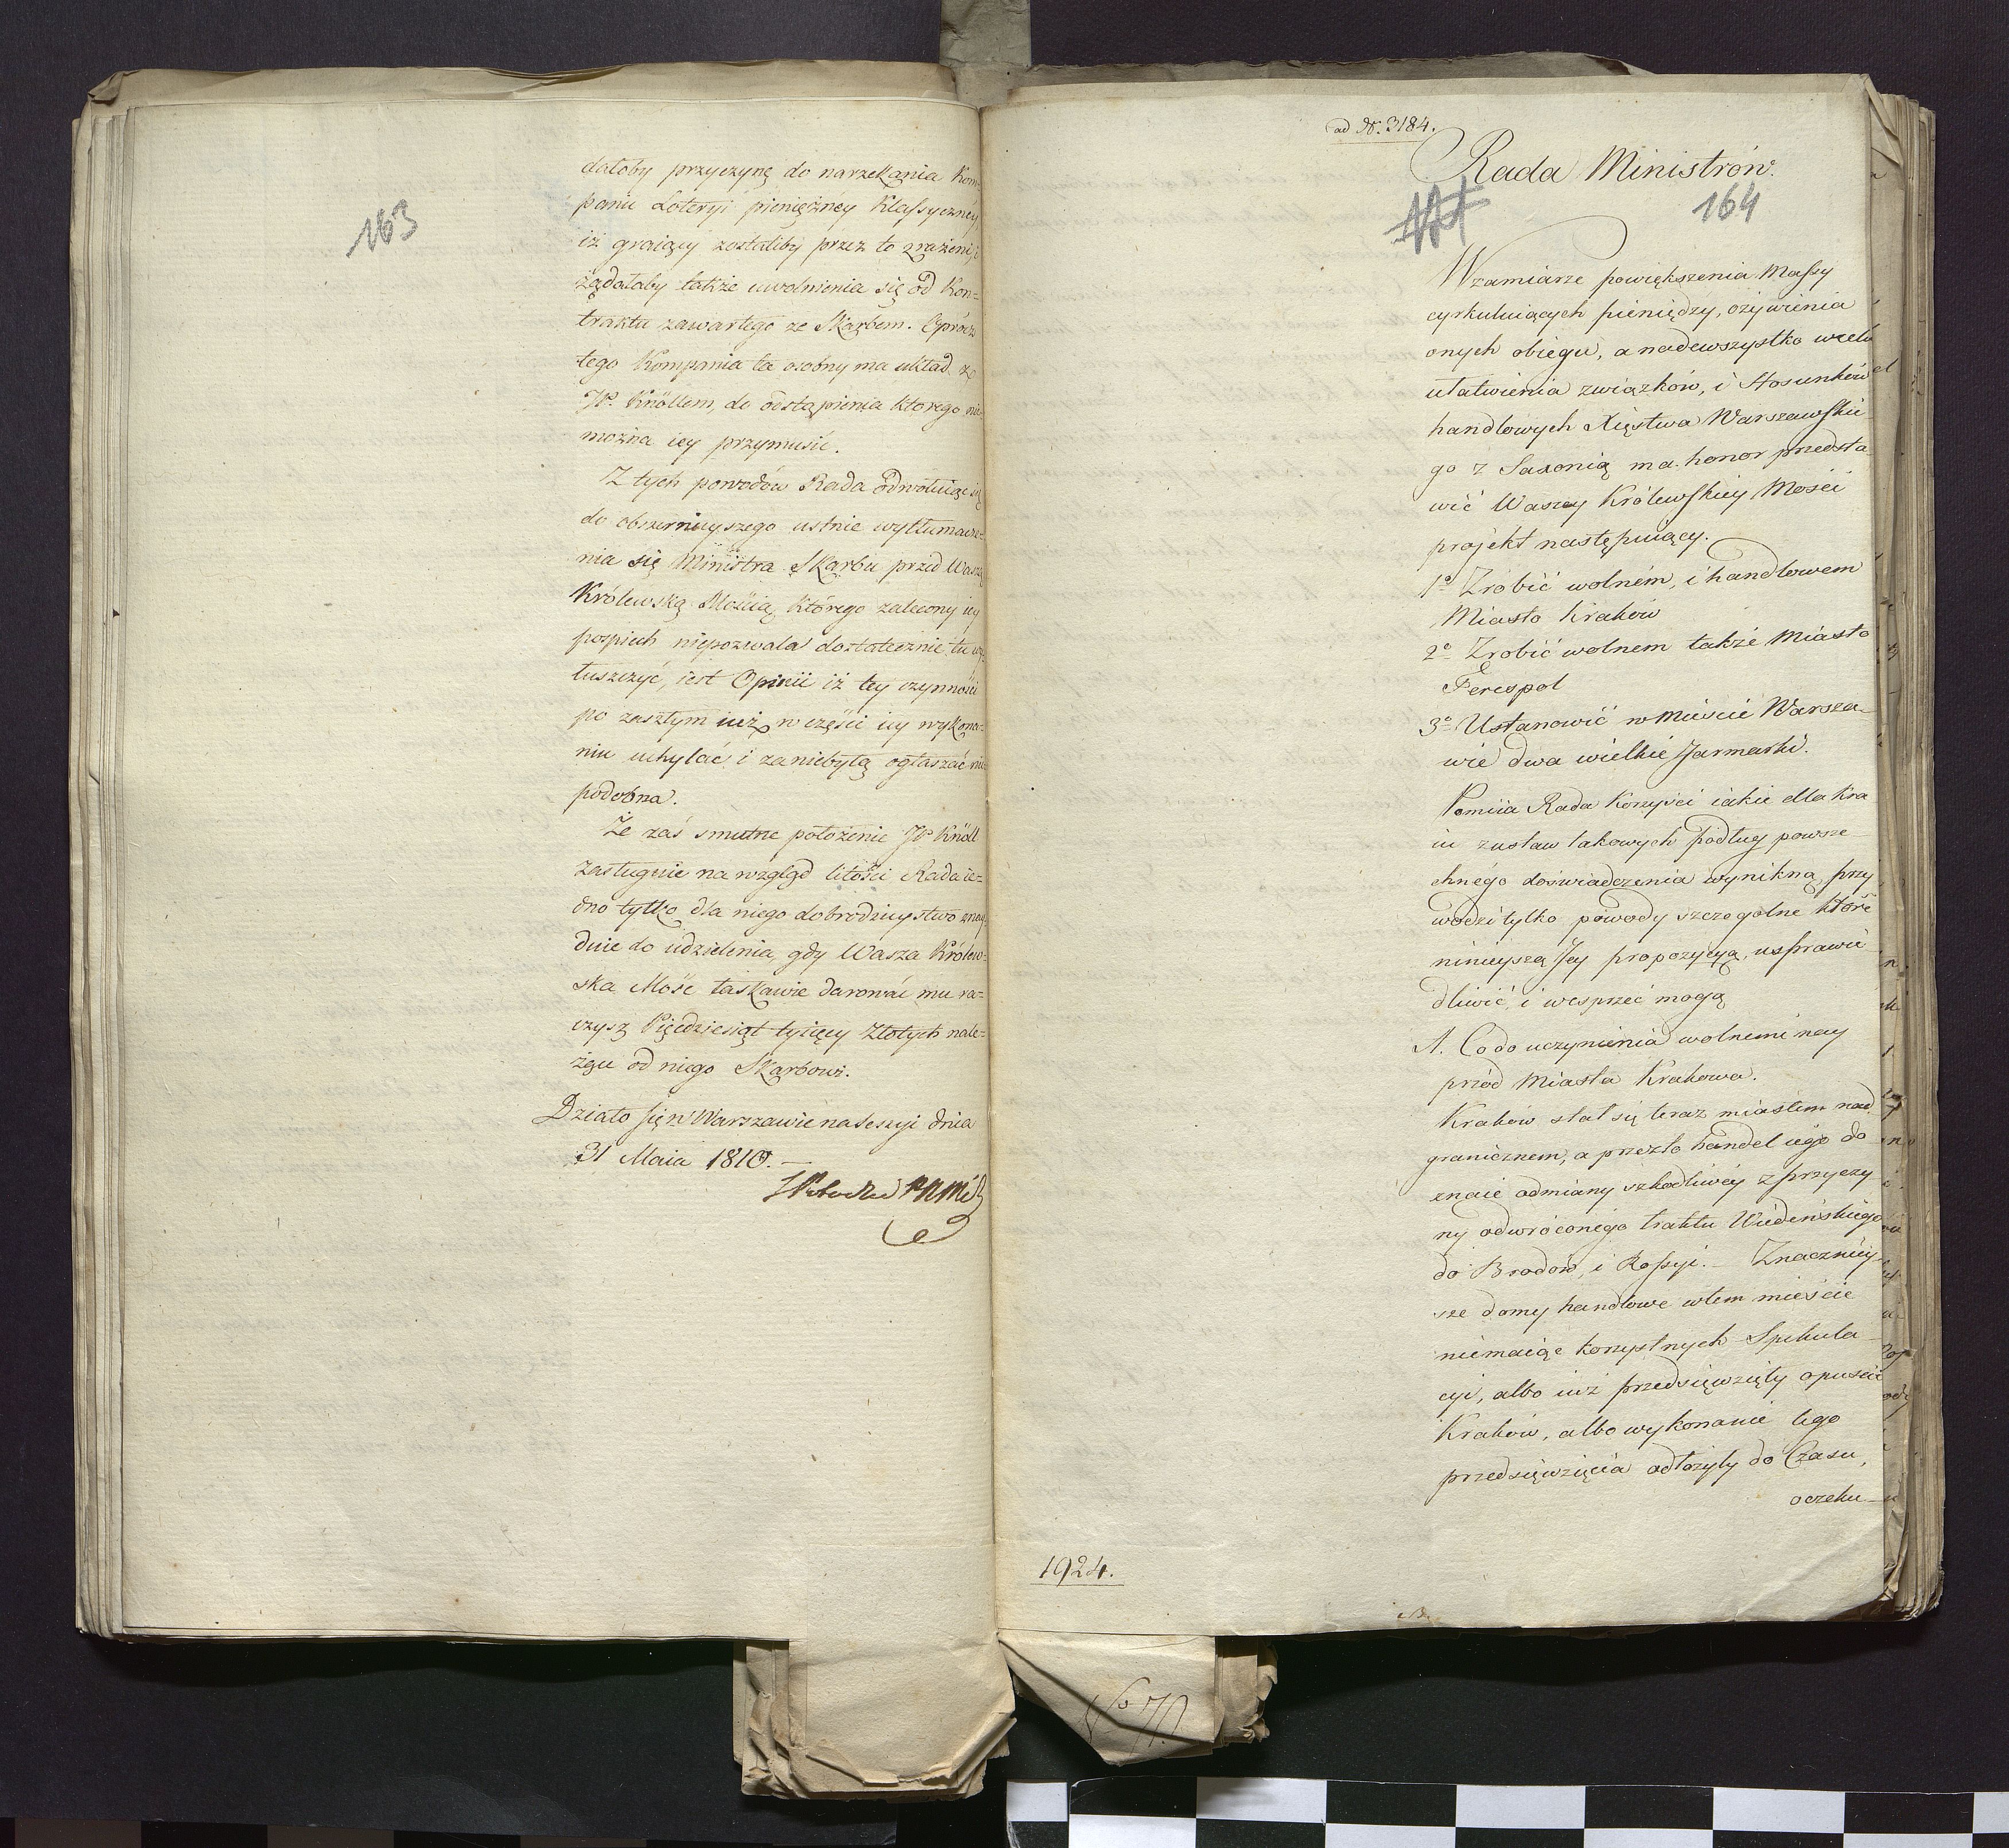 163
dałoby przyczynę do narzekania Kom=
panii Loteryi pieniężney Klassyczney
iż graiący zostaliby przez to zrażeni, i
żądałaby także uwolnienia się od Kon=
traktu zawartego ze Skarbem. Oprócz
tego Kompania ta osobny ma układ z
JP. Knöllem, do odstąpienia ktorego nie
można iey przymusić.
Z tych powodów Rada odwołuiąc się
do obszernieyszego ustnie wytłumacze=
nia się Ministra Skarbu przed Waszą
Królewską Mością, którego zalecony iey
pospiech niepozwala dostatecznie tu wy=
łuszczyć, iest Opinii iż tey czynności
po zaszłym iuż w części iey wykona=
niu uchylać i za niebyłą ogłaszać nie
podobna.
Że zaś smutne położenie JP Knöll
zasługuie na wzgląd litości Rada ie=
dno tylko dla niego dobrodzieystwo znay
duie do udzielenia, gdy Wasza Królew=
ska Mość łaskawie darować mu ra=
czysz Pięćdziesiąt tysięcy Złotych nale=
żąu od niego Skarbowi.
Działo się w Warszawie na Sessyi dnia
31 Maia 1810. —
ad Nr. 3184.
Rada Ministrów.
164
W zamiarze powiększenia Massy
cyrkuluiących pieniędzy, ożywienia
onych obiegu, a nadewszystko w celu
ułatwienia związków, i Stosunków
handlowych Xięstwa Warszawskie
go z Saxonią ma honor przedsta
wić Waszey Królewskiey Mości
projekt następuiący.
1o Zrobić wolném, i handlowem
Miasto Kraków
2o Zrobić wolnem także Miasto
Terespol
3o Ustanowić w Mieście Warsza-
wie dwa wielkie Jarmarki.
Pomiia Rada Korzyści iakie dla Kra
iu z ustaw takowych podług powsze-
chnégo doświadczenia wynikną, przy
wodzi tylko powody szczegolne które
ninieyszą Jey propozycyą, usprawie
dliwić i wesprzeć mogą
A. Co do uczynienia wolnemi nay
przód Miasta Krakowa.
Kraków stał się teraz miastem nad
granicznem, a przezto handel iego do
znaie odmiany szkodliwéy z przyczy
ny odwróconego traktu Wiedeńskiego
do Brodów, i Rossyi. — Znacznieÿ-
sze domy handlowe w tem mieście
niemaiąc korzystnych Spekula
cyi, albo iuż przedsięwzięły opuście
Kraków, albo wykonanie tego
przedsięwzięcia odłożyły do Czasu,
oczeku-
1924.